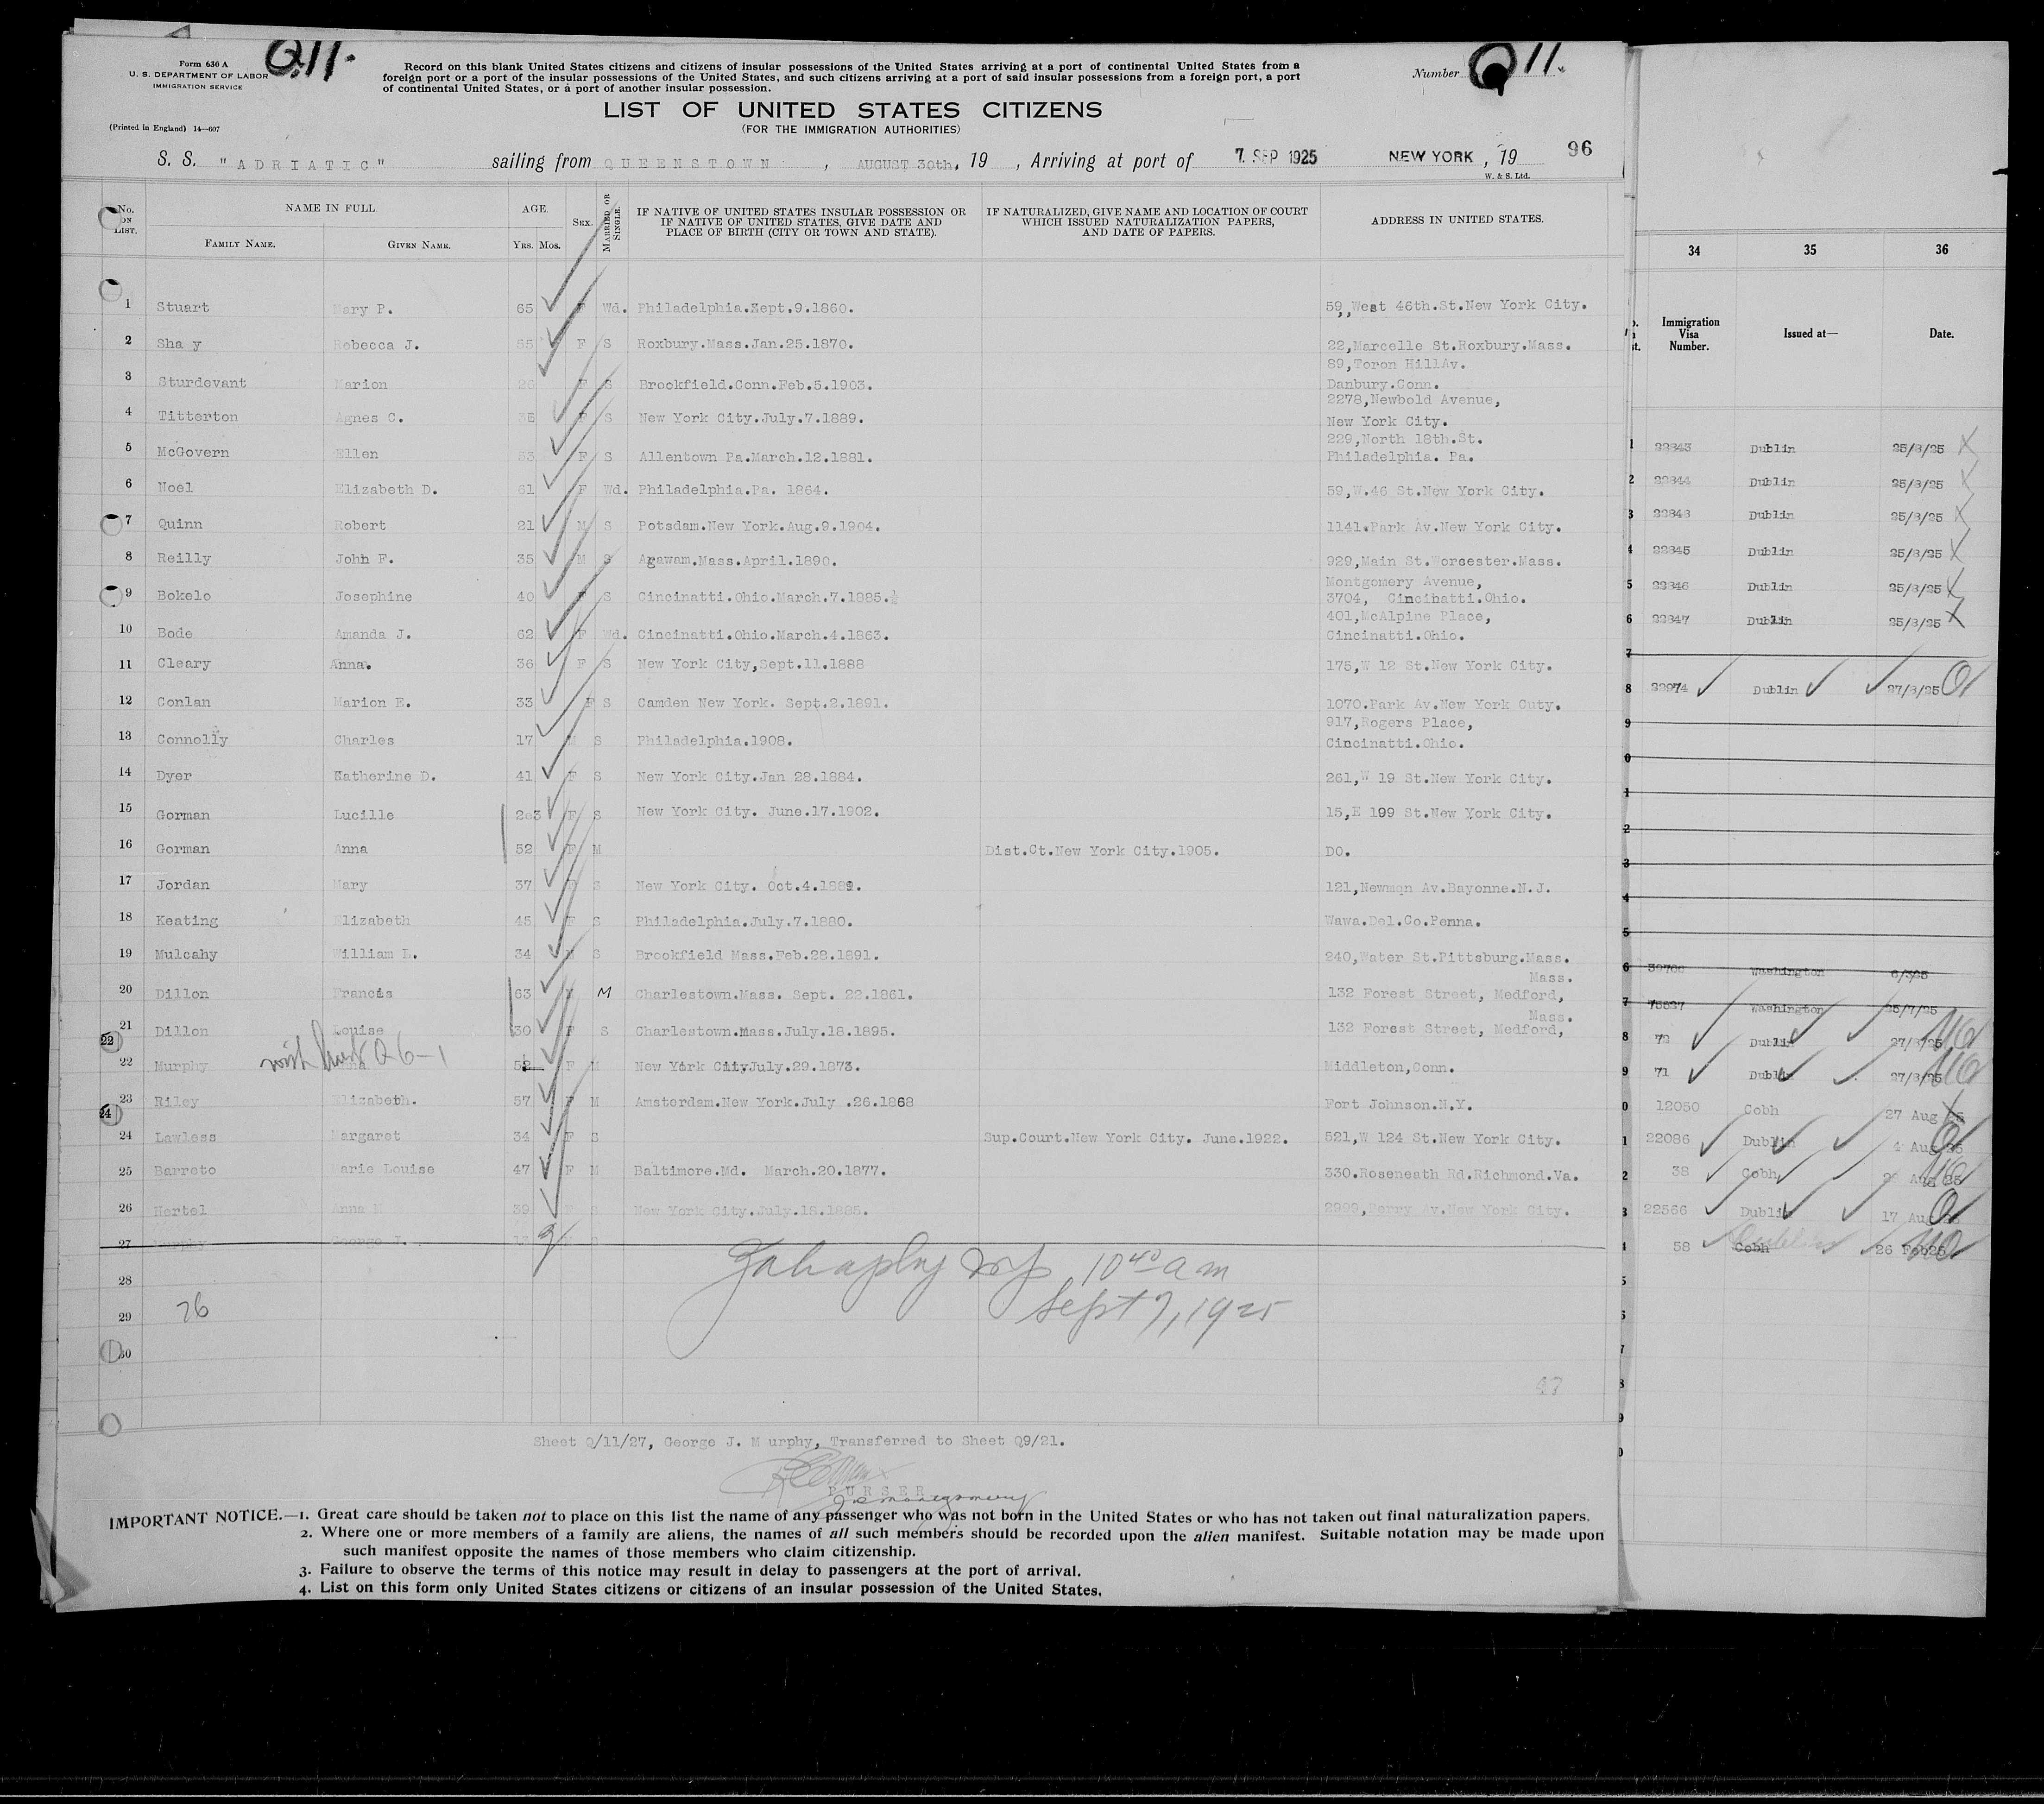 Form 630 A
U. S. DEPARTMENT OF LABOR
IMMIGRATION SERVICE
(Printed in England) 14—607
Q11.
Record on this blank United States citizens and citizens of insular possessions of the United States arriving at a port of continental United States from a
foreign port or a port of the insular possessions of the United States, and such citizens arriving at a port of said insular possessions from a foreign port, a port
of continental United States, or a port of another insular possession.
Number Q11.
LIST OF UNITED STATES CITIZENS
(FOR THE IMMIGRATION AUTHORITIES)
S. S. "ADRIATIC" sailing from QUEENSTOWN, AUGUST 30th, 19 , Arriving at port of 7 SEP 1925 NEW YORK, 19 96
W. & S. Ltd.
No. ON LIST. NAME IN FULL. FAMILY NAME. GIVEN NAME. AGE. YRS. MOS. SEX. MARRIED OR SINGLE. IF NATIVE OF UNITED STATES INSULAR POSSESSION OR IF NATIVE OF UNITED STATES, GIVE DATE AND PLACE OF BIRTH (CITY OR TOWN AND STATE). IF NATURALIZED, GIVE NAME AND LOCATION OF COURT WHICH ISSUED NATURALIZATION PAPERS, AND DATE OF PAPERS. ADDRESS IN UNITED STATES.
1 Stuart Mary P. 65 F Wd. Philadelphia.Sept.9.1860. 59,,West 46th.St.New York City.
2 Sha y Rebecca J. 55 F S Roxbury.Mass.Jan.25.1870. 22,Marcelle St.Roxbury.Mass.
3 Sturdevant Marion F S Brookfield.Conn.Feb.5.1903. 89,Toron HillAv.
Danbury.Conn.
4 Titterton Agnes C. F S New York City.July.7.1889. 2278,Newbold Avenue,
New York City.
5 McGovern Ellen 53 F S Allentown Pa.March.12.1881. 229,North 18th.St.
Philadelphia. Pa.
6 Noel Elizabeth D. 61 F Wd. Philadelphia.Pa. 1864. 59,W.46 St.New York City.
7 Quinn Robert 21 M S Potsdam.New York.Aug.9.1904. 1141.Park Av.New York City.
8 Reilly John F. 35 M S Agawam.Mass.April.1890. 929,Main St.Worcester.Mass.
9 Bokelo Josephine 40 F S Cincinatti.Ohio.March.7.1885. Montgomery Avenue,
3704, Cincinatti.Ohio.
10 Bode Amanda J. 62 F Wd. Cincinatti.Ohio.March.4.1863. 401,McAlpine Place,
Cincinatti.Ohio.
11 Cleary Anna. 36 F S New York City,Sept.11.1888 175,W 12 St.New York City.
12 Conlan Marion E. 33 F S Camden New York. Sept.2.1891. 1070.Park Av.New York Cuty.
13 Connolly Charles 17 M S Philadelphia.1908. 917,Rogers Place,
Cincinatti.Ohio.
14 Dyer Katherine D. 41 F S New York City.Jan 28.1884. 261,W 19 St.New York City.
15 Gorman Lucille 23 F S New York City. June.17.1902. 15,E 199 St.New York City.
16 Gorman Anna 52 F M Dist.Ct.New York City.1905. DO.
17 Jordan Mary 37 F S New York City. Oct.4. 121,Newman Av.Bayonne.N.J.
18 Keating Elizabeth 45 F S Philadelphia.July.7.1880. Wawa.Del.Co.Penna.
19 Mulcahy William L. 34 M S Brookfield Mass.Feb.28.1891. 240,Water St.Pittsburg.Mass.
20 Dillon Francis 63 M M Charlestown.Mass. Sept. 22.1861. 132 Forest Street, Medford, Mass.
21 Dillon Louise 30 F S Charlestown.Mass.July.18.1895. 132 Forest Street, Medford, Mass.
22 22 Murphy Anna 52 F M New York CityJuly.29.1873. Middleton,Conn.
Q6-1
23 Riley Elizabeth. 57 F M Amsterdam.New York.July .26.1868 Fort Johnson.N.Y.
24 24 Lawless Margaret 34 F S Sup.Court.New York City. June.1922. 521,W 124 St.New York City.
25 Barreto Marie Louise 47 F M Baltimore.Md. March.20.1877. 330.Roseneath Rd.Richmond.Va.
26 Hertel Anna M 39 F S New York City.July.18.1885. 2999,Perry Av.New York City.
27 Murphy George J. 13 S
28
29 26
30
10 40 a m
Sept 7, 1925
47
Sheet Q/11/27, George J. M urphy, Transferred to Sheet Q9/21.
PURSER
J R Montgomery
IMPORTANT NOTICE.—1. Great care should be taken not to place on this list the name of any passenger who was not born in the United States or who has not taken out final naturalization papers.
2. Where one or more members of a family are aliens, the names of all such members should be recorded upon the alien manifest. Suitable notation may be made upon
such manifest opposite the names of those members who claim citizenship.
3. Failure to observe the terms of this notice may result in delay to passengers at the port of arrival.
4. List on this form only United States citizens or citizens of an insular possession of the United States.
34 35 36
Immigration Visa Number. Issued at— Date.
1 22843 Dublin 25/8/25
2 22844 Dublin 25/8/25
3 22848 Dublin 25/8/25
4 22845 Dublin 25/8/25
5 22846 Dublin 25/8/25
6 22847 Dublin 25/8/25
7
8 22974 Dublin 27/8/25
9
0
1
2
3
4
5
6 Washington
7 Washington 25/7/25
8 72 Dublin 27/8/25
9 71 Dublin 27/8/25
0 12050 Cobh 27 Aug 25
1 22086 Dublin 4 Aug 25
2 38 Cobh Aug 25
3 22566 Dublin 17 Aug
4 58 Cobh Dublin 26 Feb25